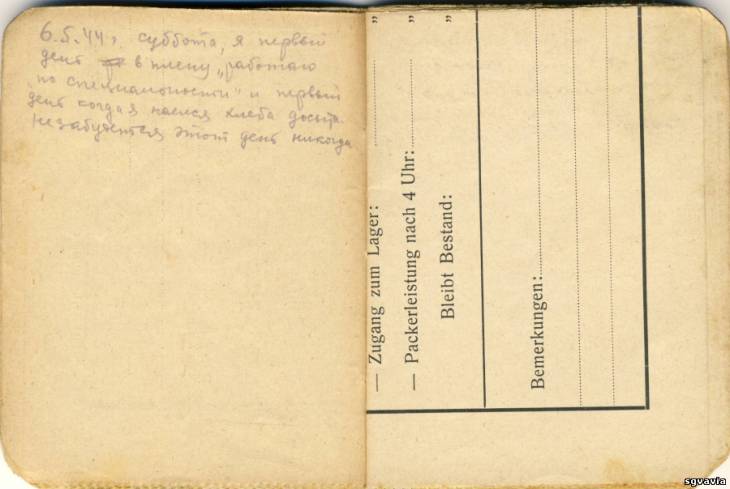 6.5.44 г. суббота, я первый
день в плену „работаю
по специальности" и первый
день когда я наелся хлеба досыта.
Незабудется этот день никогда
— Zugang zum Lager: "
— Packerleistung nach 4 Uhr: "
Bleibt Bestand: "
Bemerkungen:
sgvavia